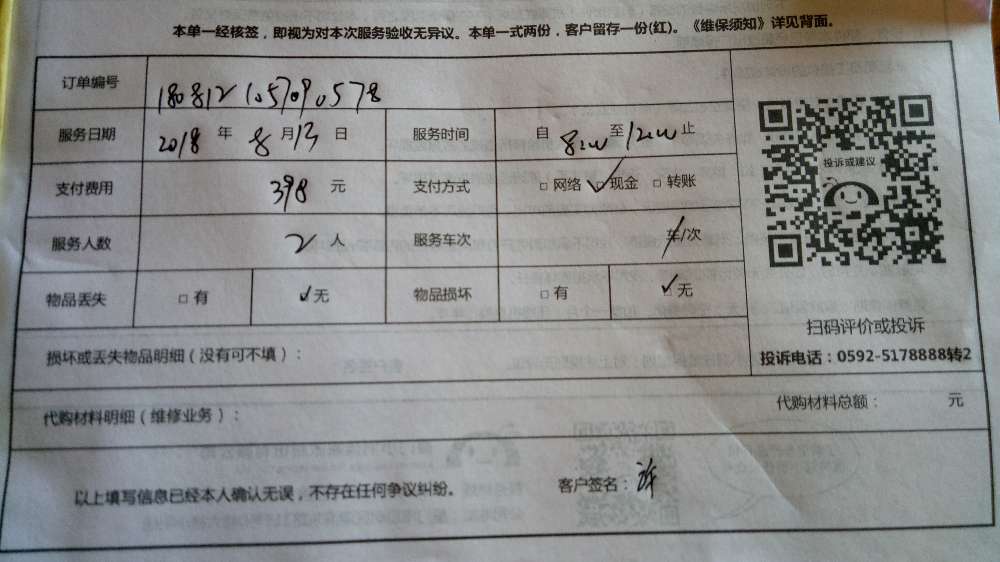 本单一经核签，即视为对本次服务验收无异议。本单一式两份，客户留存一份(红)。《维保须知》详见背面。
订单编号 1808121057090578
服务日期 2018 年 8 月 13 日 服务时间 自 8:00 至 12:00 止
支付费用 398 元 支付方式 □ 网络 ☑ 现金 □ 转账
服务人数 2 人 服务车次 车/次
物品丢失 □ 有 ☑ 无 物品损坏 □ 有 ☑ 无
投诉或建议
扫码评价或投诉
投诉电话：0592-5178888转2
损坏或丢失物品明细（没有可不填）：
代购材料明细（维修业务）： 代购材料总额： 元
以上填写信息已经本人确认无误，不存在任何争议纠纷。 客户签名：许